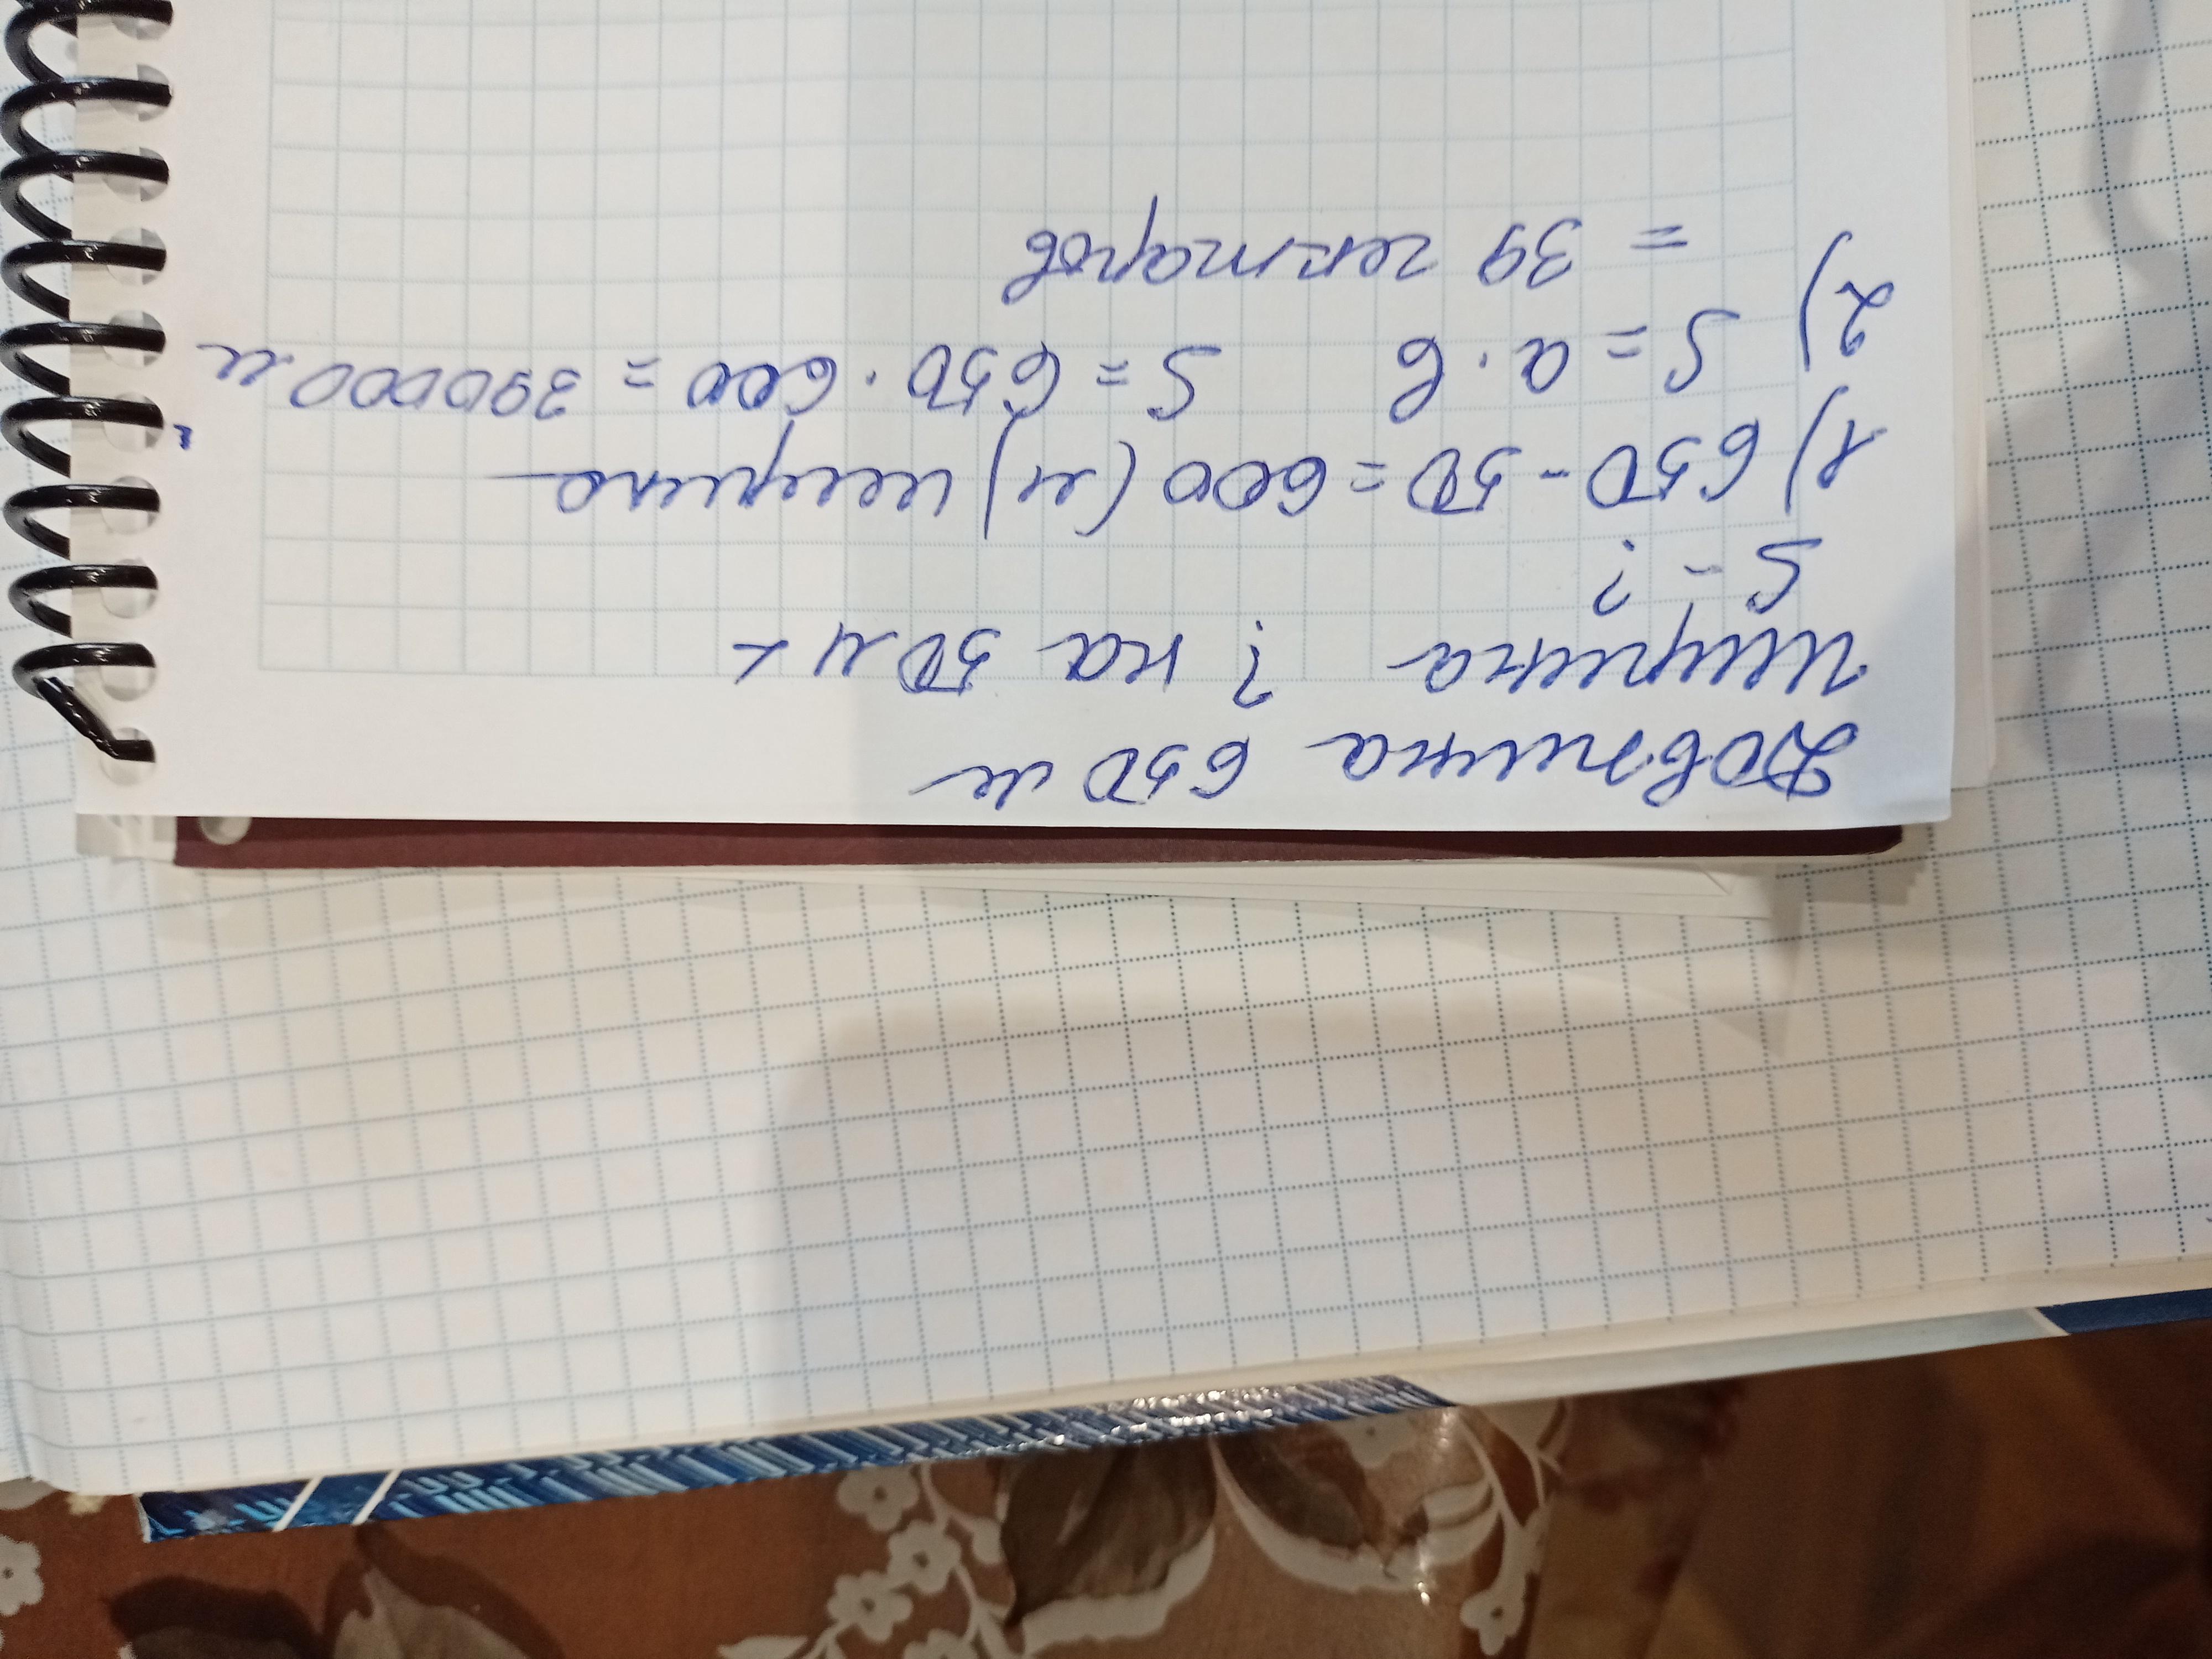 Довжина 650 м
ширина ? на 50 м <
S - ?
1) 650 - 50 = 600 (м) ширина
2) S = a · b S = 650 · 600 = 390000 м²
= 39 гектарів